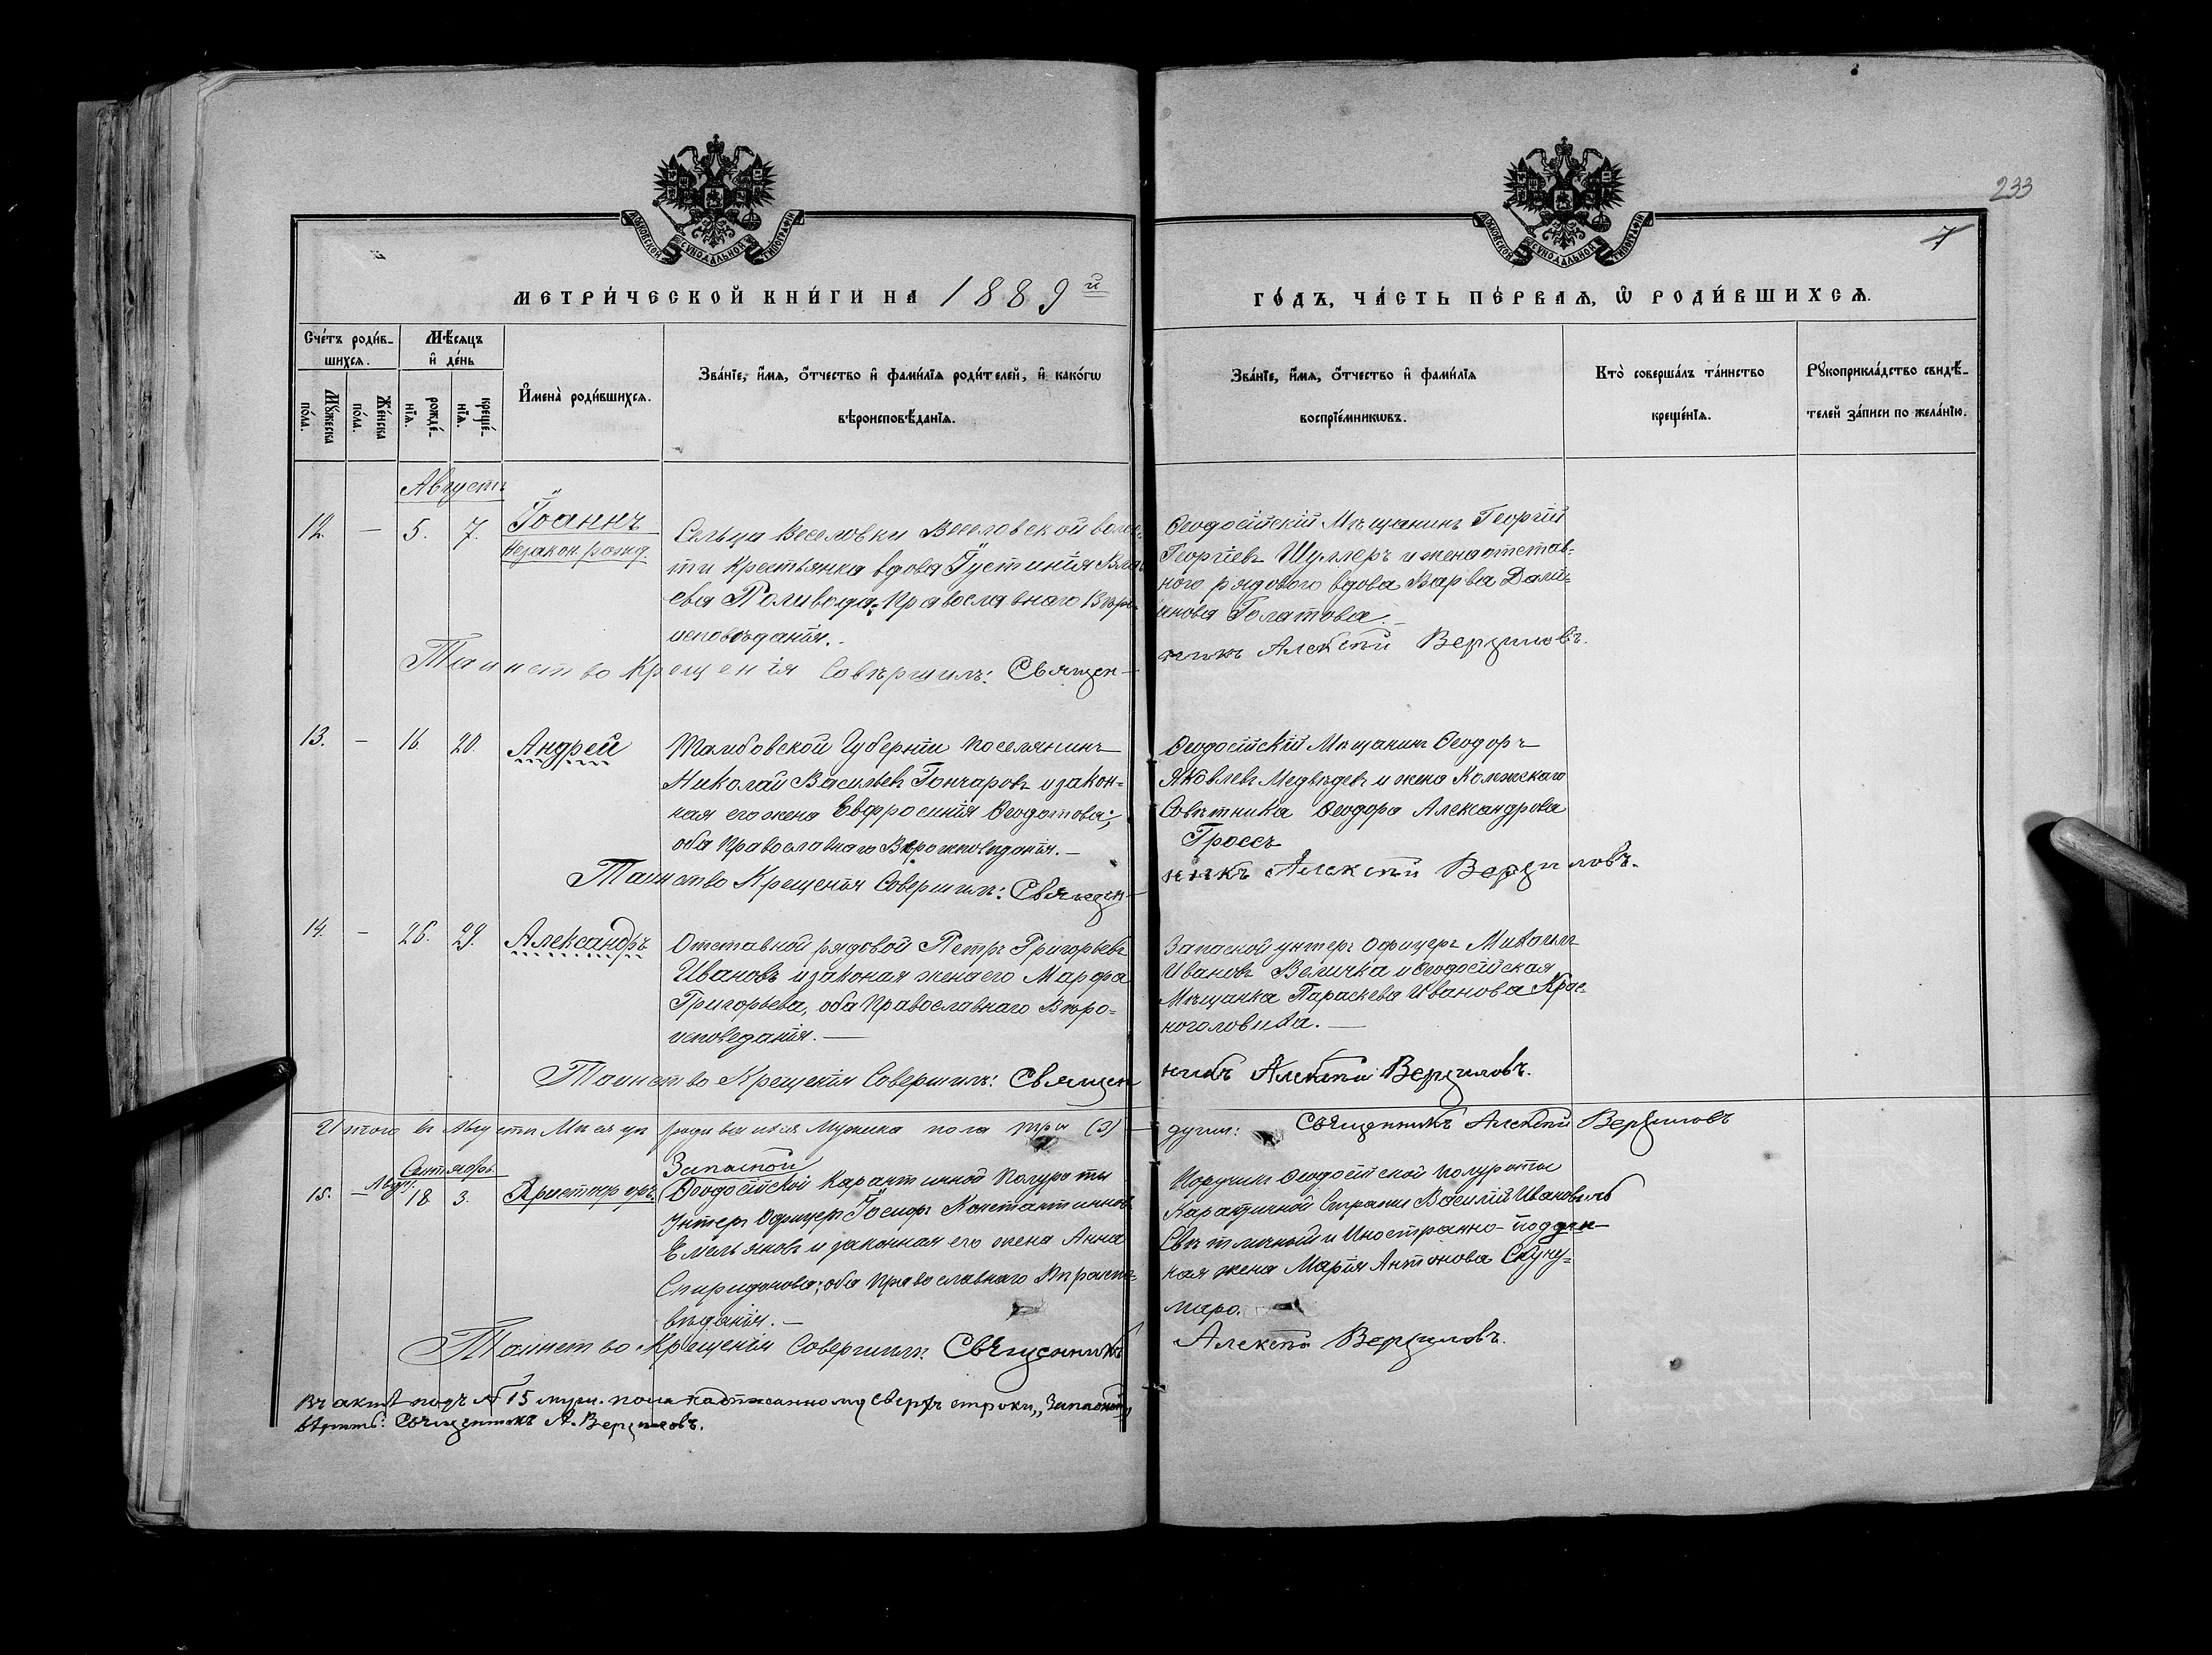 233
7
МОСКОВСКОЙ СѴНОДАЛЬНОЙ ТИПОГРАФІИ
МОСКОВСКОЙ СѴНОДАЛЬНОЙ ТИПОГРАФІИ
МЕТРИ́ЧЕСКОЙ КНИ́ГИ НА 1889й
ГО́ДЪ, ЧА́СТЬ ПЕ́РВАѦ, Ѡ҆ РОДИ́ВШИХСѦ.
Сче́тъ роди́в-
шихсѧ.
Мꙋ́жеска по́ла.
Же́нска по́ла.
Мѣ́сѧцъ
и҆ де́нь
рожде́-
нїѧ.
креще́-
нїѧ.
И҆мена̀ роди́вшихсѧ.
Зва́нїе, и҆́мѧ, ѻ҆́тчество и҆ фами́лїѧ роди́телей, и҆ како́гѡ
вѣроисповѣ́данїѧ.
Зва́нїе, и҆́мѧ, ѻ҆́тчество и҆ фами́лїѧ
воспрїе́мникѡвъ.
Кто̀ соверша́лъ та́инство
креще́нїѧ.
Рꙋкоприкла́дство свидѣ́-
телей за́писи по жела́нїю.
Августъ
12. — 5. 7. Іоаннъ
Незакон. рожд.
Сельца Веселовки Веселовской волос-
ти Крестьянка вдова Іустинія
Поливода, Православнаго Вѣро-
исповѣданія.
Ѳеодосійскій Мѣщанинъ Георгій
Георгіевъ Шуллеръ и жена отстав-
ного рядового вдова
Голатова.
Таинство Крещенія Совершилъ: Священ-
никъ Алексѣй Верциловъ.
13. — 16. 20. Андрей
Тамбовской Губерніи поселянинъ
Николай Васильевъ Гончаровъ и закон-
ная его жена Евфросинія Ѳеодотова;
оба Православнаго Вѣроисповѣданія. —
Ѳеодосійскій Мѣщанинъ Ѳеодоръ
Яковлевъ Медвѣдевъ и жена Колежскаго
Совѣтника Ѳеодора Александрова
Гроссъ
Таинство Крещенія Совершилъ: Священ-
никъ Алексѣй Верциловъ.
14. — 26. 29. Александръ
Отставной рядовой Петръ Григорьевъ
Ивановъ и законая жена его Марфа
Григорьева, оба Православнаго Вѣро-
исповеданія. —
Запасной унтеръ Офицеръ
Ивановъ Величка и Ѳеодосійская
Мѣщанка Параскева Иванова Крас-
ноголовита. —
Таинство Крещенія Совершилъ: Священ
никъ Алексѣй Верциловъ.
Итого въ Августѣ Мѣсяцѣ родившихся Мужска пола три (3) —
душъ: Священникъ Алексѣй Верциловъ
Сентябрь.
15. — Авгус. 18 3. Христофоръ.
Запасной
Ѳеодосійской Карантинной Полуроты
Унтеръ Офицеръ Іосифъ Константиновъ
Емельяновъ и законная его жена Анна
Спиридонова; оба Православнаго Вѣроиспо-
вѣданія. —
Поручикъ Ѳеодосійской полуроты
Карантинной Стражи Василій Ивановичъ
Свѣтличный и Иностранно-поддан-
ная жена Марія Антонова Скуну-
маро.
Таинство Крещенія Совершилъ: Священникъ
Алексѣй Верциловъ.
Въ актѣ подъ № 15 муж. пола надписанному сверхъ строки „Запасной"
вѣрить: Священникъ А. Верциловъ.